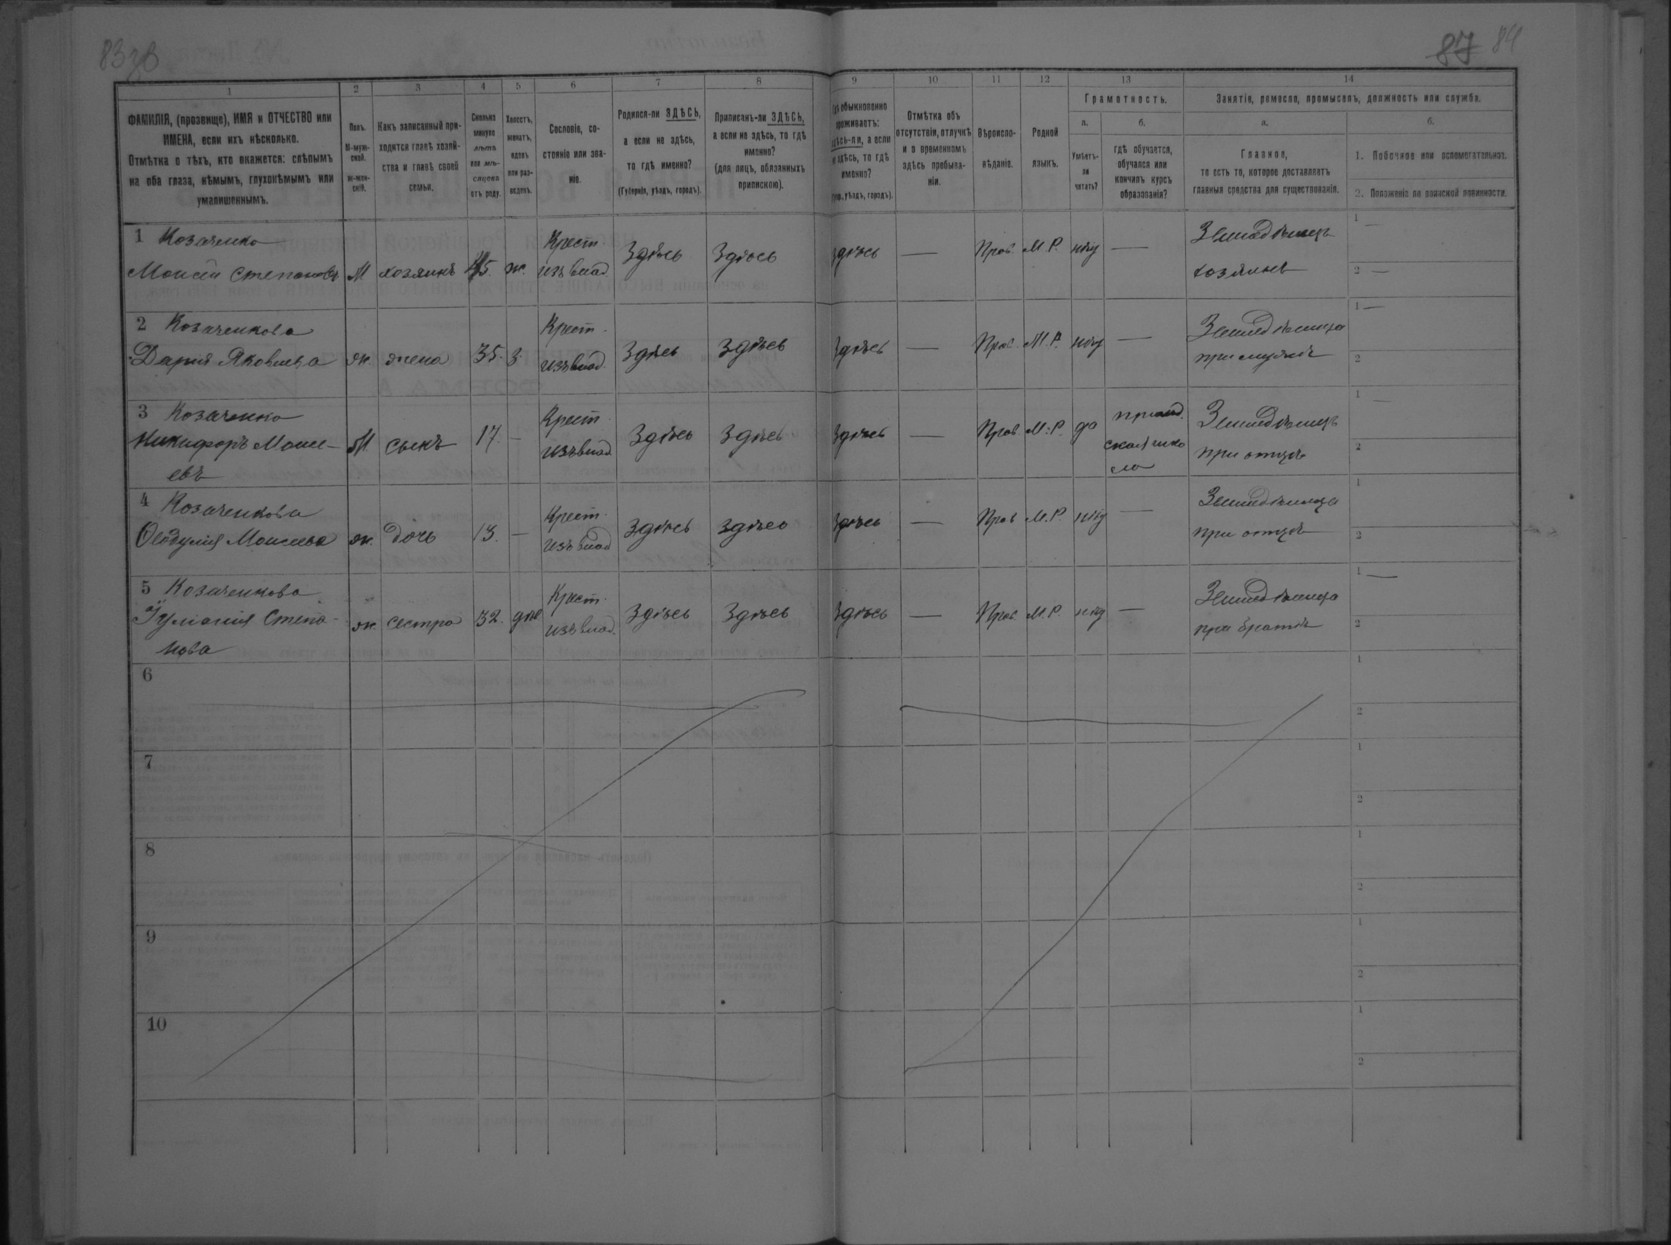 83 об
87 84
1 2 3 4 5 6 7 8 9 10 11 12 13 14
ФАМИЛІЯ, (прозвище), ИМЯ и ОТЧЕСТВО или
ИМЕНА, если ихъ нѣсколько.
Отмѣтка о тѣхъ, кто окажется: слѣпымъ
на оба глаза, нѣмымъ, глухонѣмымъ или
умалишеннымъ.
Полъ.
М-муж-
ской.
Ж-жен-
скій.
Какъ записанный при-
ходится главѣ хозяй-
ства и главѣ своей
семьи.
Сколько
минуло
лѣтъ
или мѣ-
сяцевъ
отъ роду.
Холостъ,
женатъ,
вдовъ
или раз-
веденъ.
Сословіе, со-
стояніе или зва-
ніе.
Родился-ли ЗДѢСЬ,
а если не здѣсь,
то гдѣ именно?
(Губернія, уѣздъ, городъ).
Приписанъ-ли ЗДѢСЬ,
а если не здѣсь, то гдѣ
именно?
(для лицъ, обязанныхъ
припискою).
обыкновенно
проживаетъ:
здѣсь-ли, а если
не здѣсь, то гдѣ
именно?
уѣздъ, городъ).
Отмѣтка объ
отсутствіи, отлучкѣ
и о временномъ
здѣсь пребыва-
ніи.
Вѣроиспо-
вѣданіе.
Родной
языкъ.
Грамотность.
а.
Умѣетъ-
ли
читать?
б.
гдѣ обучается,
обучался или
кончилъ курсъ
образованія?
Занятіе, ремесло, промыселъ, должность или служба.
а.
Главное,
то есть то, которое доставляетъ
главныя средства для существованія.
б.
1. Побочное или вспомогательное.
2. Положеніе по воинской повинности.
1 Козаченко Крест Земледѣлецъ 1 —
Моисей Степановъ М хозяинъ 45 ж. изъ влад. Здѣсь Здѣсь здѣсь — Прав М.Р. нѣт — хозяинъ 2 —
2 Козаченкова Крест. Земледѣлица 1 —
Дарья Яковлева ж. жена 35. З. изъ влад. Здѣсь Здѣсь Здѣсь — Прав М.Р. нѣт — при мужѣ 2
3 Козаченко Крест. Земледѣлецъ 1 —
Никифоръ Моисе- М. сынъ 17 — изъ влад Здѣсь Здѣсь Здѣсь — Прав М.Р. да ская шко при отцѣ 2
евъ ла
4 Козаченкова Крест. Земледѣлица 1
Моисеева ж. дочь 13. — изъ влад Здѣсь Здѣсь Здѣсь — Прав М.Р. нѣт — при отцѣ 2
5 Козаченкова Крест. Земледѣлица 1 —
Іуліанія Степа- ж. сестра 32. дѣв изъ влад. Здѣсь Здѣсь Здѣсь — Прав М.Р. нѣт — при братѣ 2
нова
6 1
2
7 1
2
8 1
2
9 1
2
10 1
2